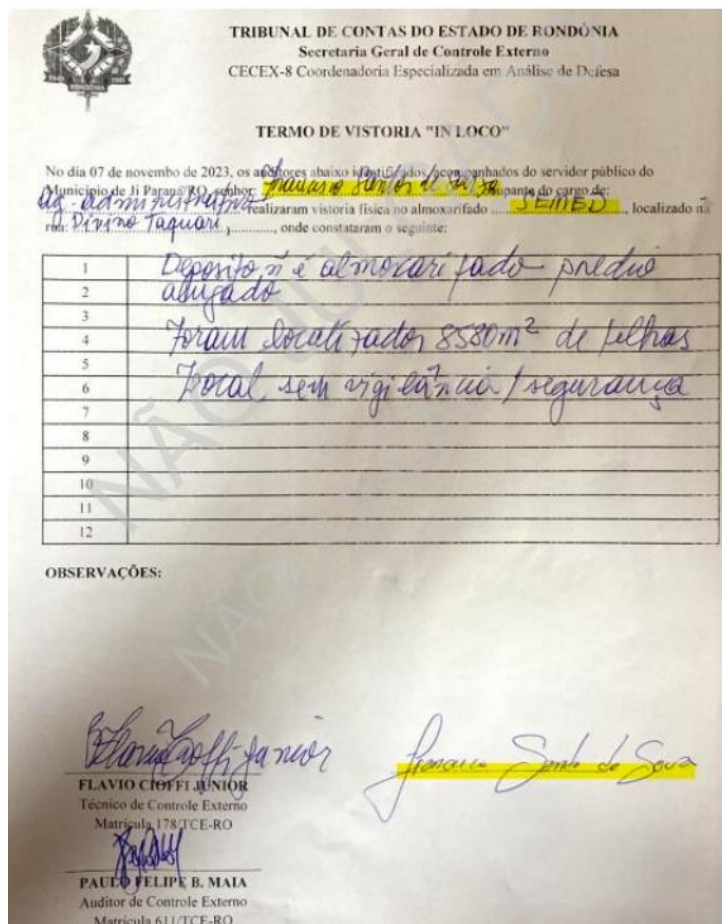 TRIBUNAL DE CONTAS DO ESTADO DE RONDÔNIA
Secretaria Geral de Controle Externo
CECEX-8 Coordenadoria Especializada em Análise de Defesa
TERMO DE VISTORIA "IN LOCO"
No dia 07 de novembro de 2023, os auditores abaixo identificados, acompanhados do servidor público do
Município de Ji Paraná/RO, senhor: Francisco Santos de Souza ocupante do cargo de:
Ag. administrativo realizaram vistoria física no almoxarifado SEMED, localizado na
rua: Divino Taquari, onde constataram o seguinte:
1 Deposito ñ é almoxarifado predio
2 alugado
3
4 Foram localizados 8580m² de telhas
5
6 Local sem vigilância / segurança
7
8
9
10
11
12
OBSERVAÇÕES:
Flavio Cioffi Junior
Francisco Santos de Souza
FLAVIO CIOFFI JUNIOR
Técnico de Controle Externo
Matrícula 178/TCE-RO
PAULO FELIPE B. MAIA
Auditor de Controle Externo
Matrícula 611/TCE-RO